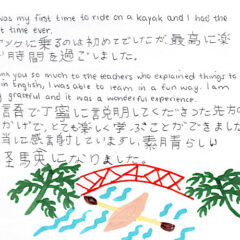 was my first time to ride on a kayak and I had the
time ever.
ックに乗るのは初めてでしたが、最高に楽
時間を過ごしました。
you so much to the teachers who explained things to
in English, I was able to learn in a fun way. I am
grateful and it was a wonderful experience.
語で丁寧に説明してくださった先方の
かげで、とても楽しく学ぶことができました
当に感謝していますし、素晴らしい
になりました。